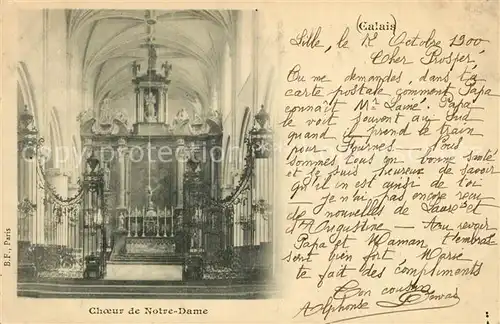 (Calais)
Lille, le 12 Octobre 1900
Cher Prosper,
Tu me demandes, dans ta
carte postale comment Papa
connaît Mr Lainé. Papa
le voit souvent au Sud
quand il prend le train
pour Fournes — Nous
sommes tous en bonne santé
et je suis heureux de savoir
qu'il en est ainsi de toi
je n'ai pas encore reçu
de nouvelles de et
d'Augustine — Au revoir
Papa et Maman t'embras
sent bien fort. Marie
te fait des compliments
Ton cousin
Alphonse
Chœur de Notre-Dame
B. F., Paris